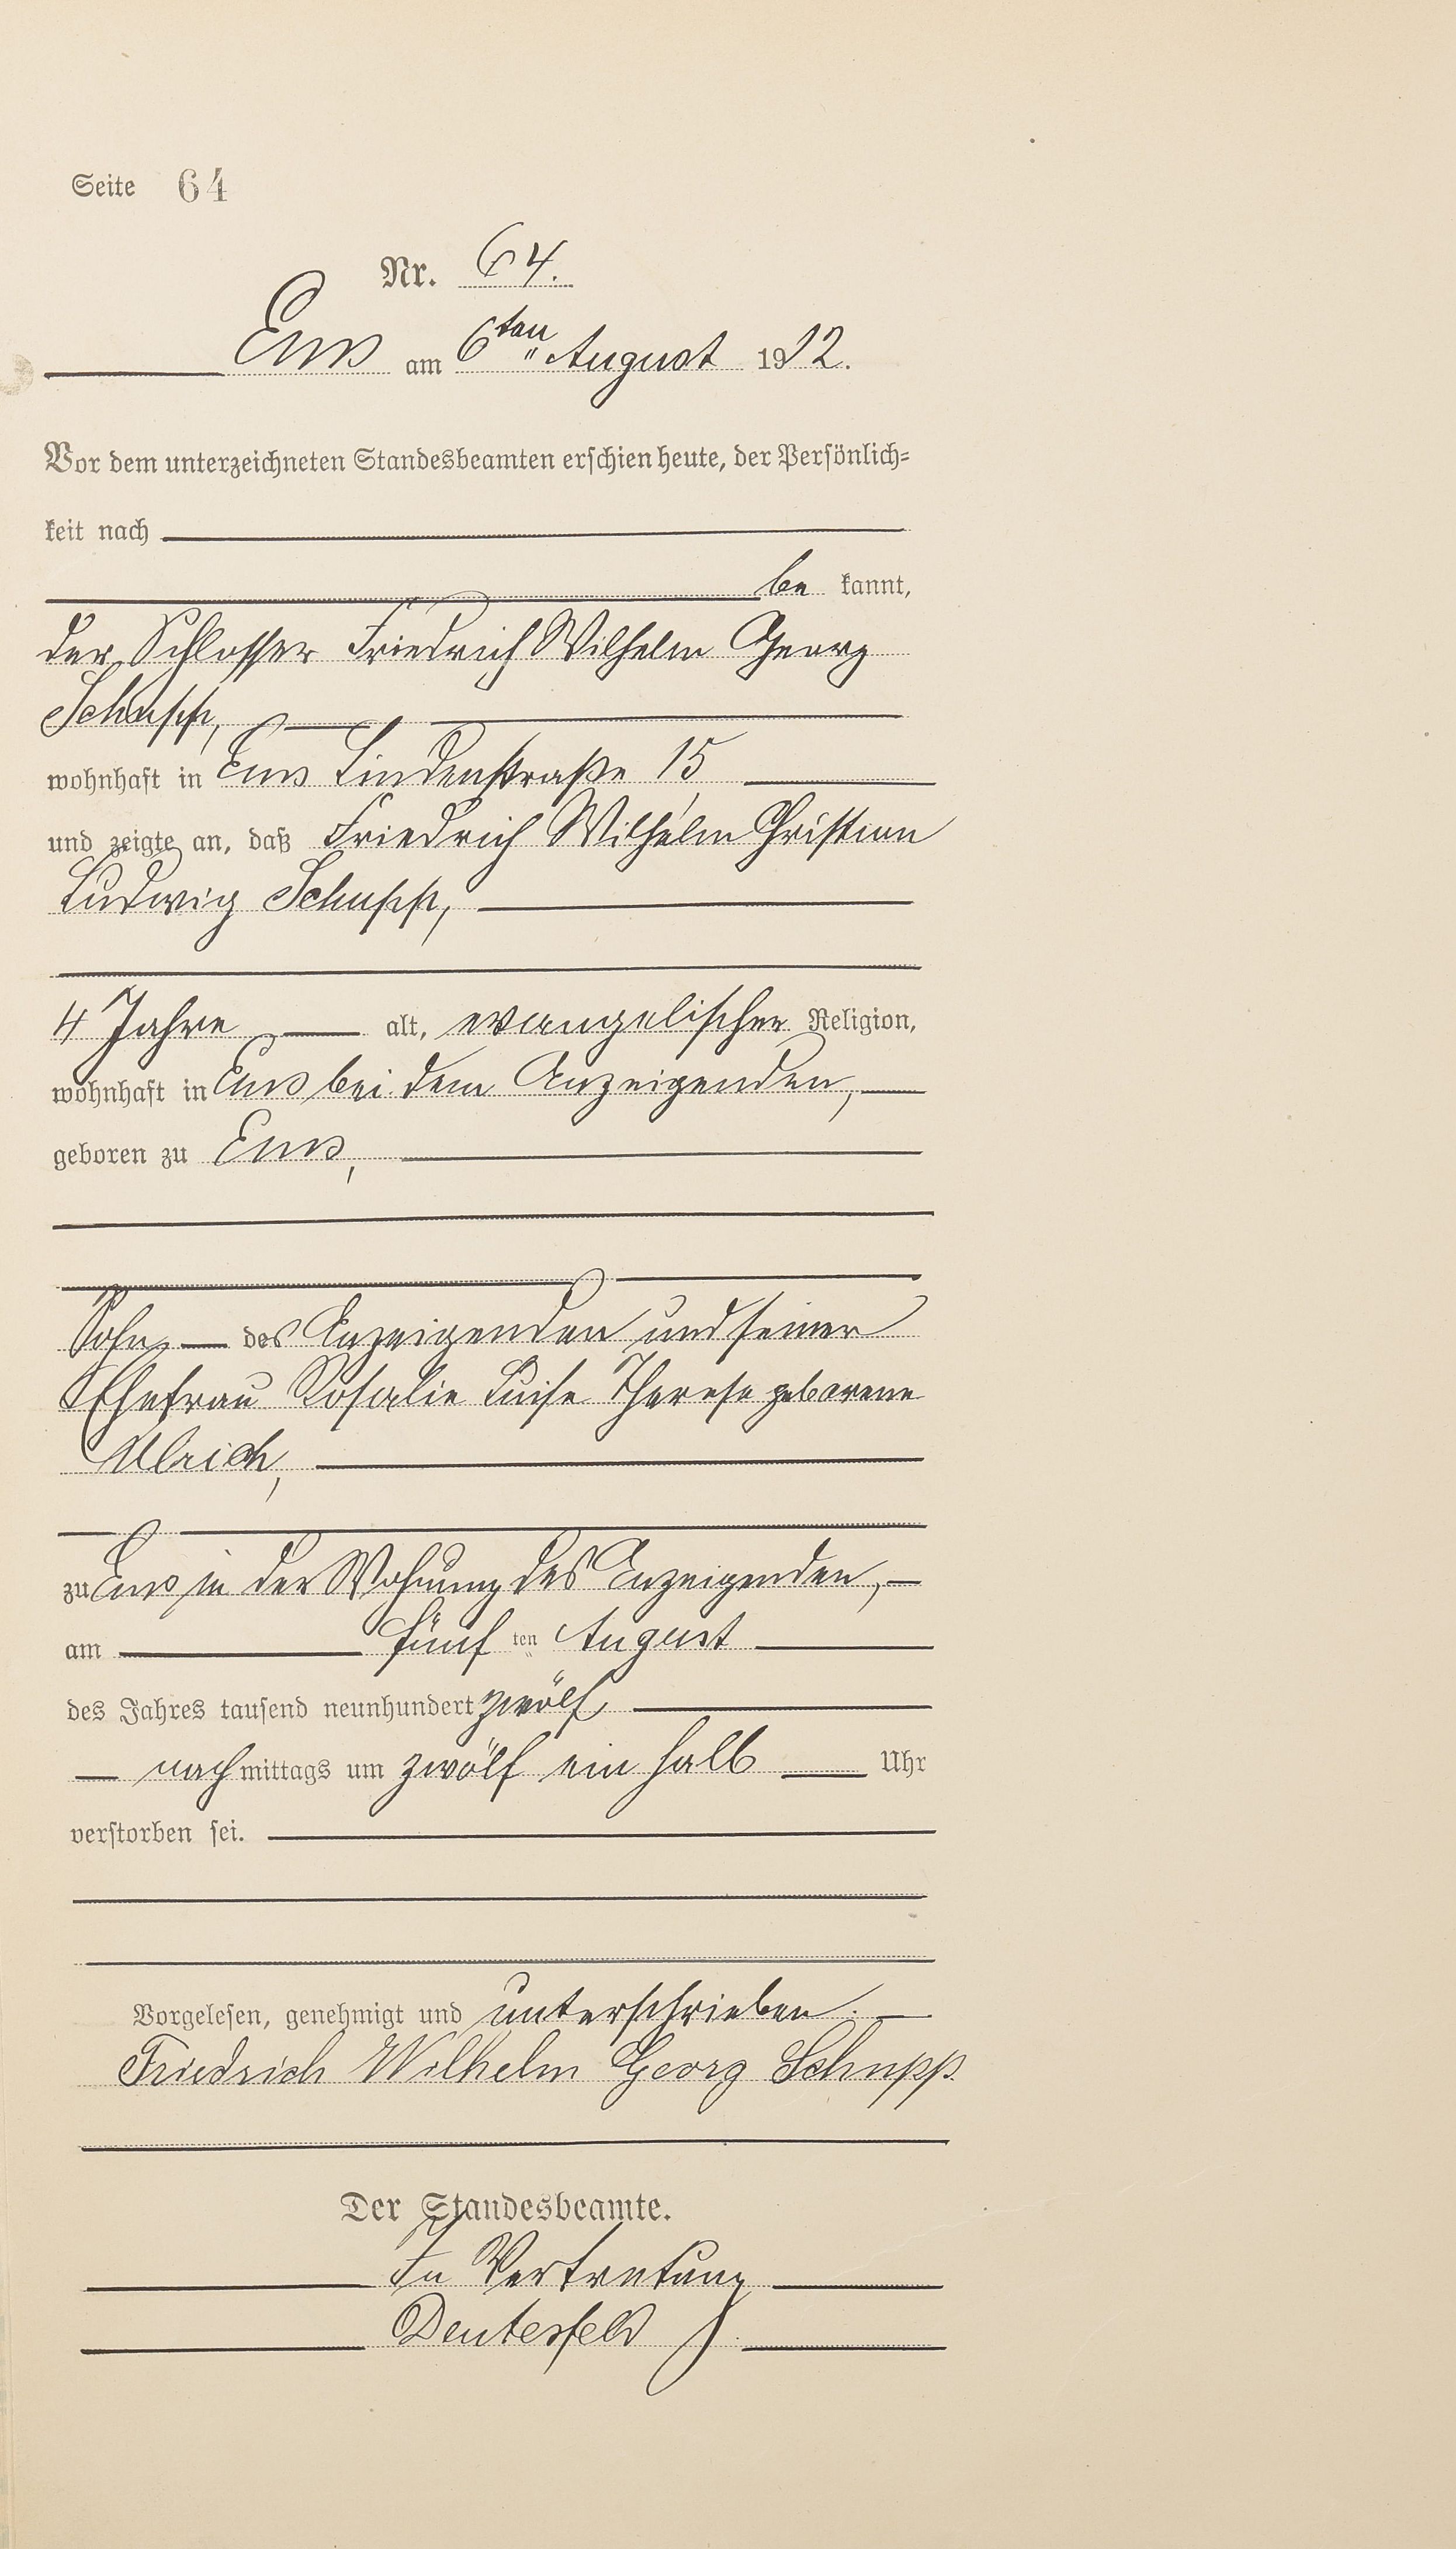 Seite 64
Nr. 64.
Ems am 6ten August 1912.
Vor dem unterzeichneten Standesbeamten erschien heute, der Persönlich=
keit nach
be kannt,
der Schlosser Friedrich Wilhelm Georg
Schupp,
wohnhaft in Ems Lindenstraße 15
und zeigte an, daß Friedrich Wilhelm Christian
Ludwig Schupp,
4 Jahre alt, evangelischer Religion,
wohnhaft in Ems bei dem Anzeigenden,
geboren zu Ems,
Sohn des Anzeigenden und seiner
Ehefrau Rosalie Luise Therese geborene
Ulrich,
zu Ems in der Wohnung des Anzeigenden,
am fünf ten August
des Jahres tausend neunhundert zwölf
nach mittags um zwölf ein halb Uhr
verstorben sei.
Vorgelesen, genehmigt und unterschrieben.
Friedrich Wilhelm Georg Schupp.
Der Standesbeamte.
In Vertretung